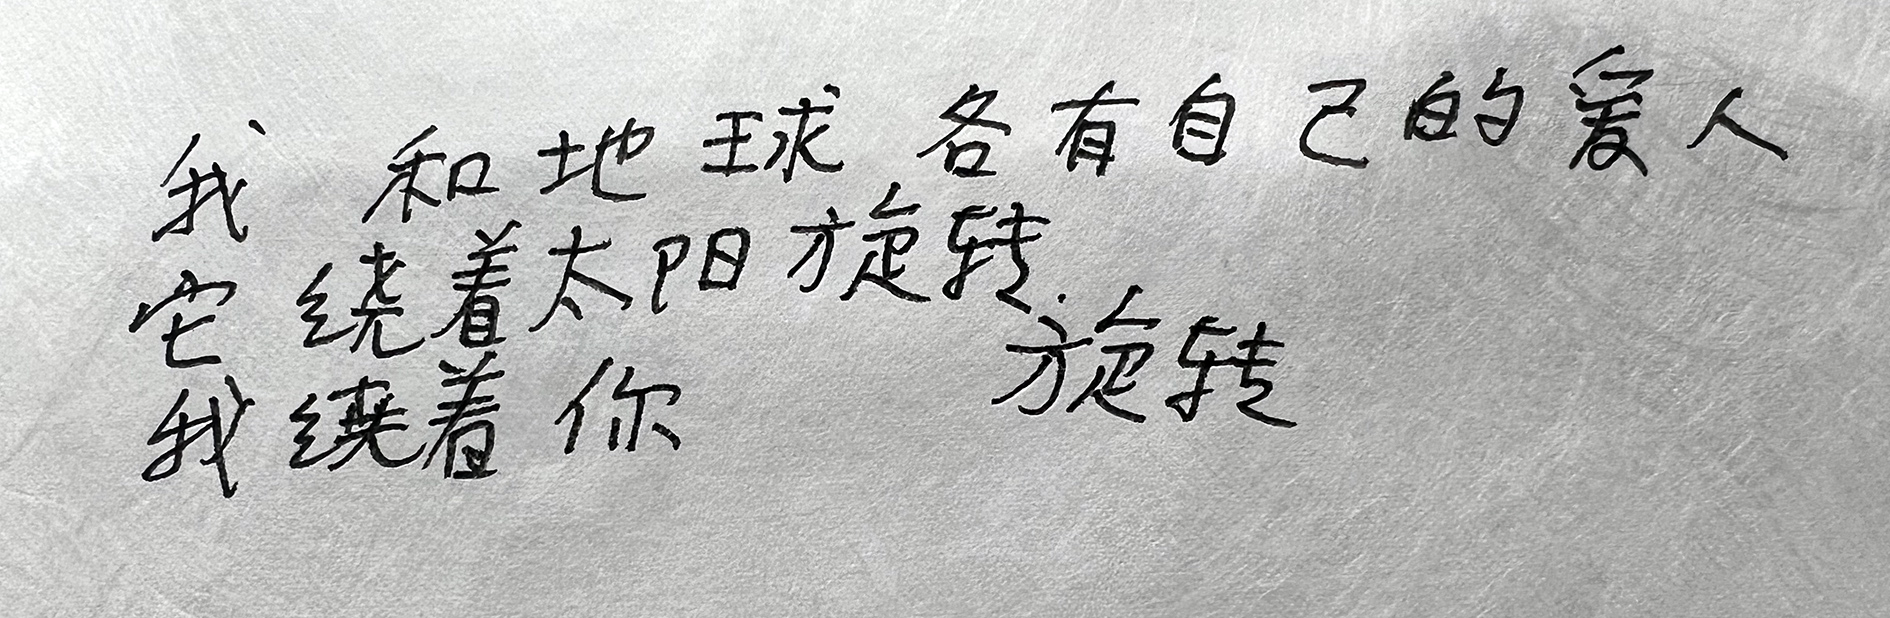 我 和地球 各有自己的爱人
它 绕着太阳旋转.
我绕着你 旋转